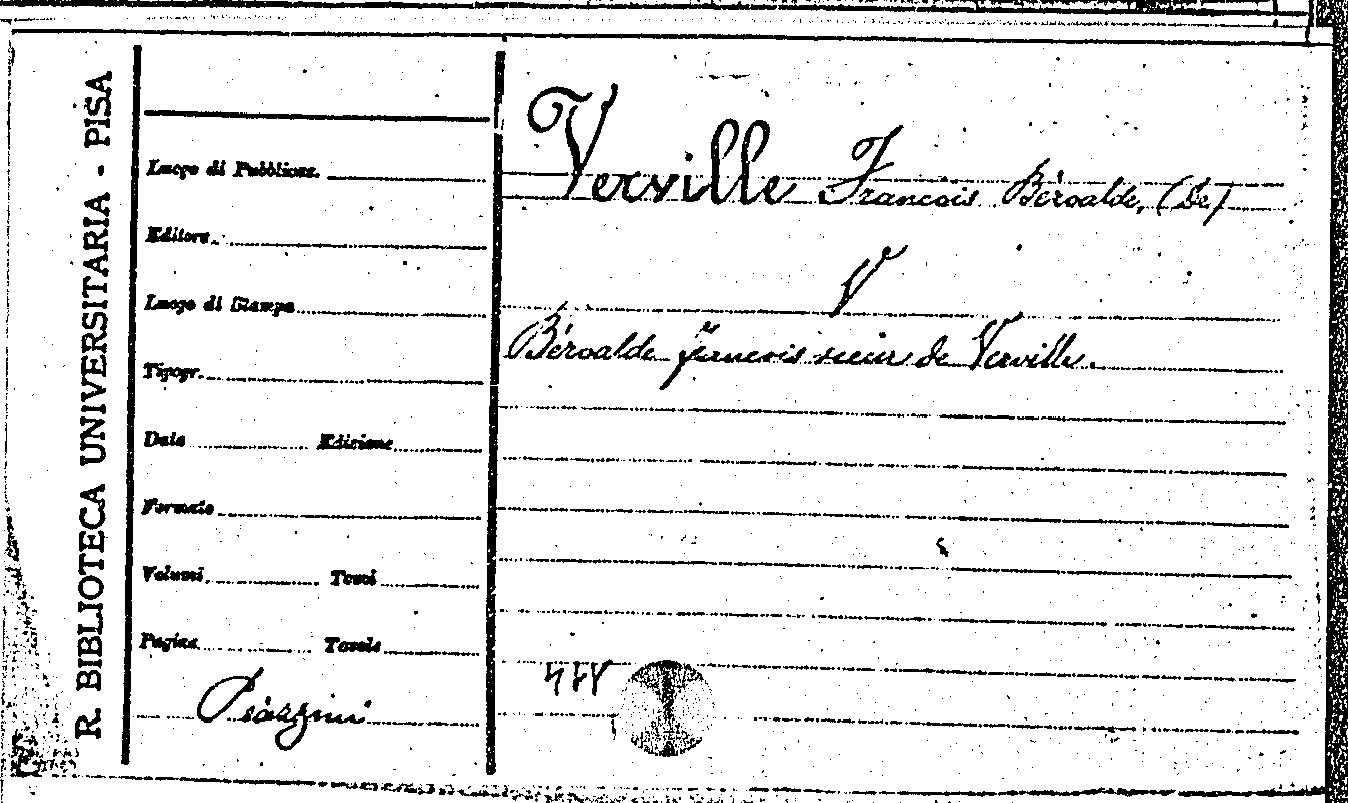 R. BIBLIOTECA UNIVERSITARIA - PISA
Luogo di Pubblicaz.
Editore
Luogo di Stampa
Tipogr.
Data Edizione
Formato
Volumi Tomi
Pagine Tavole
Piazzini
Verville François Béroalde, (De)
V
Béroalde François sieur de Verville.